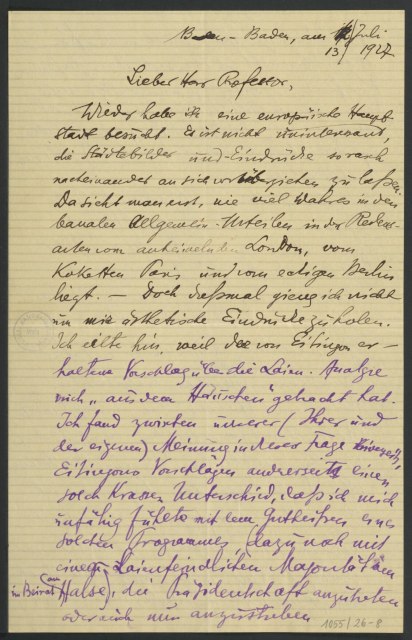 Baden-Baden, am Juli
13 1927
Lieber Herr Professor,
Wieder habe ich eine europäische Haupt-
stadt besucht. Es ist nicht uninteressant,
die Städtebilder und -Eindrücke so rasch
nacheinander an sich vorüberziehen zu laßen.
Da sieht man erst, wie viel Wahres in den
banalen Allgemein-Urteilen in der Redens-
arten vom anheimelnden London, vom
Koketten Paris und vom eckigen Berlin
liegt. — Doch diesmal gieng ich nicht
um mir ästhetische Eindrücke zu holen.
Ich eilte hin, weil der von Eitingon er-
haltene Vorschlag über die Laien-Analyse
mich „aus dem Häuschen" gebracht hat.
Ich fand zwischen unserer (Ihrer und
der eigenen) Meinung in dieser Frage einerseits,
Eitingons Vorschlägen andrerseits einen
solch krassen Unterschied, daß ich mich
unfähig fühlte mit dem Gutheißen eines
solchen Programmes, dazu noch mit
einer Laienfeindlichen Majorität am
im Beirat Halse), die Präsidentschaft anzutreten
oder auch nur anzustreben
1055/26-8